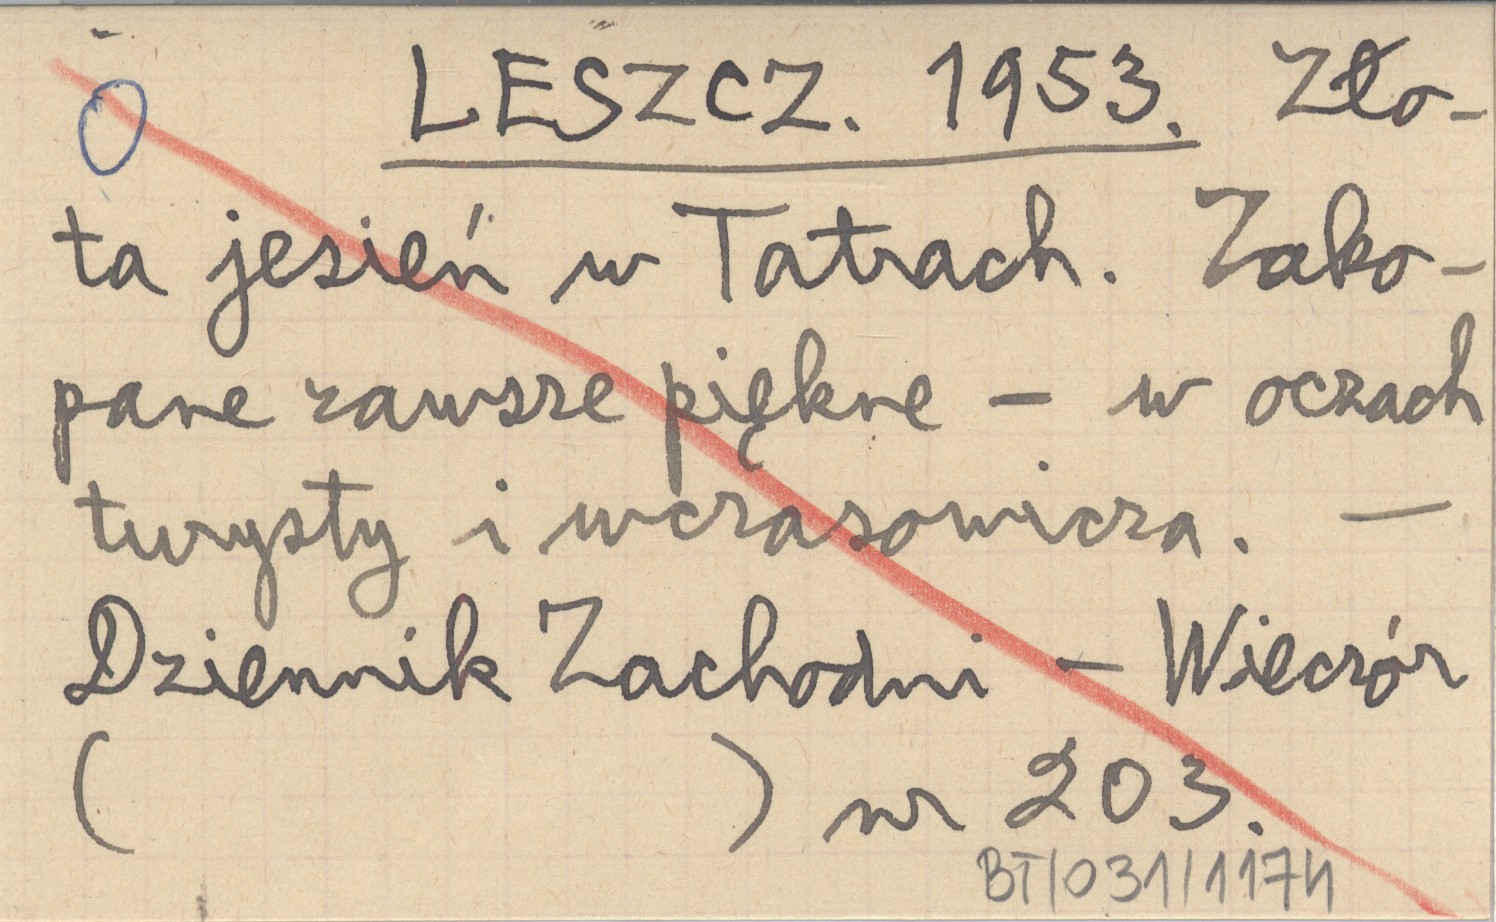 LESZCZ. 1953. Zło-
ta jesień w Tatrach. Zako-
pane zawsze piękne – w oczach
turysty i wczasowicza. —
Dziennik Zachodni – Wieczór
( ) nr 203.
BT/031/1174